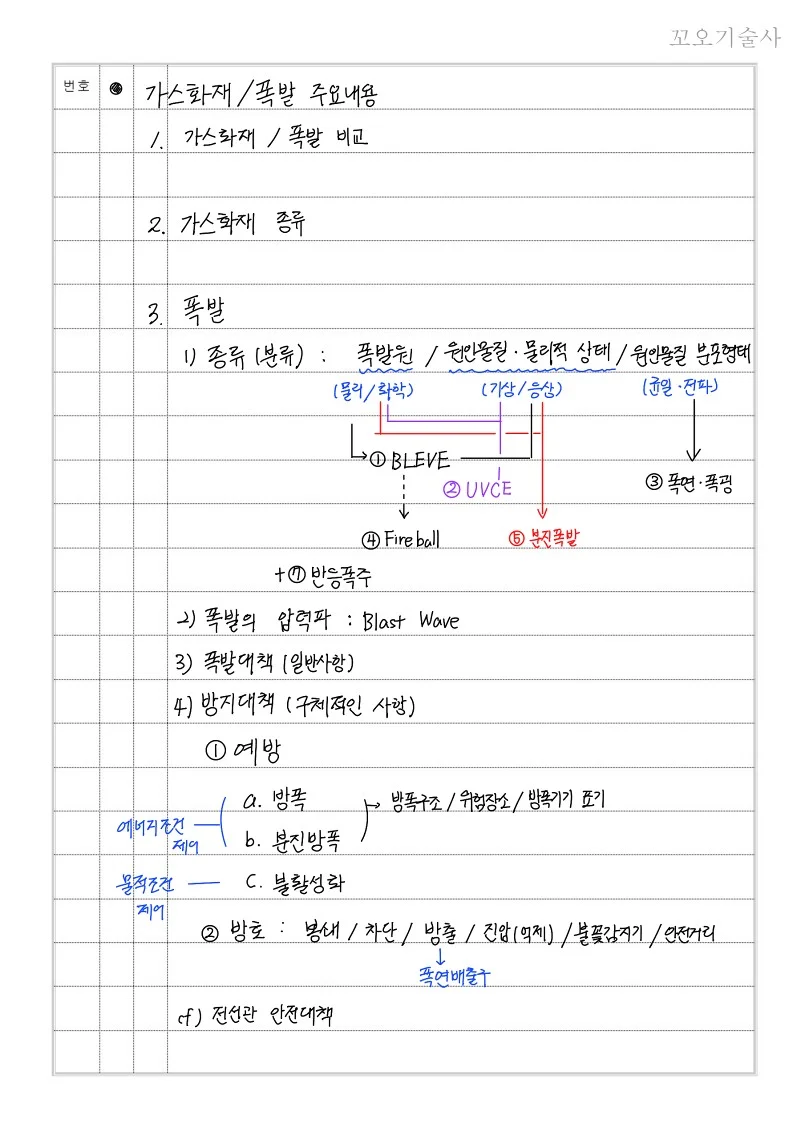 꼬오기술사
번호
가스화재 / 폭발 주요내용
1. 가스화재 / 폭발 비교
2. 가스화재 종류
3. 폭발
1) 종류 (분류) : 폭발원 / 원인물질·물리적 상태 / 원인물질 분포형태
(물리/화학) (기상/응상) (균일·전파)
① BLEVE
② UVCE
③ 폭연·폭굉
④ Fireball ⑤ 분진폭발
+⑦ 반응폭주
2) 폭발의 압력파 : Blast Wave
3) 폭발대책 (일반사항)
4) 방지대책 (구체적인 사항)
① 예방
a. 방폭 → 방폭구조 / 위험장소 / 방폭기기 표기
에너지조건 제어
b. 분진방폭
물적조건 제어
C. 불활성화
② 방호 : 봉쇄 / 차단 / 방출 / 진압(억제) / 불꽃감지기 / 안전거리
↓
폭연배출구
cf) 전선관 안전대책